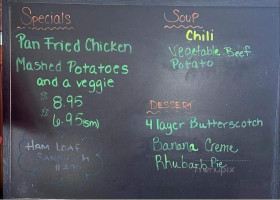 Specials
Pan Fried Chicken
Mashed Potatoes
and a veggie
$ 8.95
$ 6.95 (sm)
HAM LOAF
SANDWICH
Soup
Chili
Vegetable Beef
Potato
DESSERT
4 layer Butterscotch
Banana Creme
Rhubarb Pie